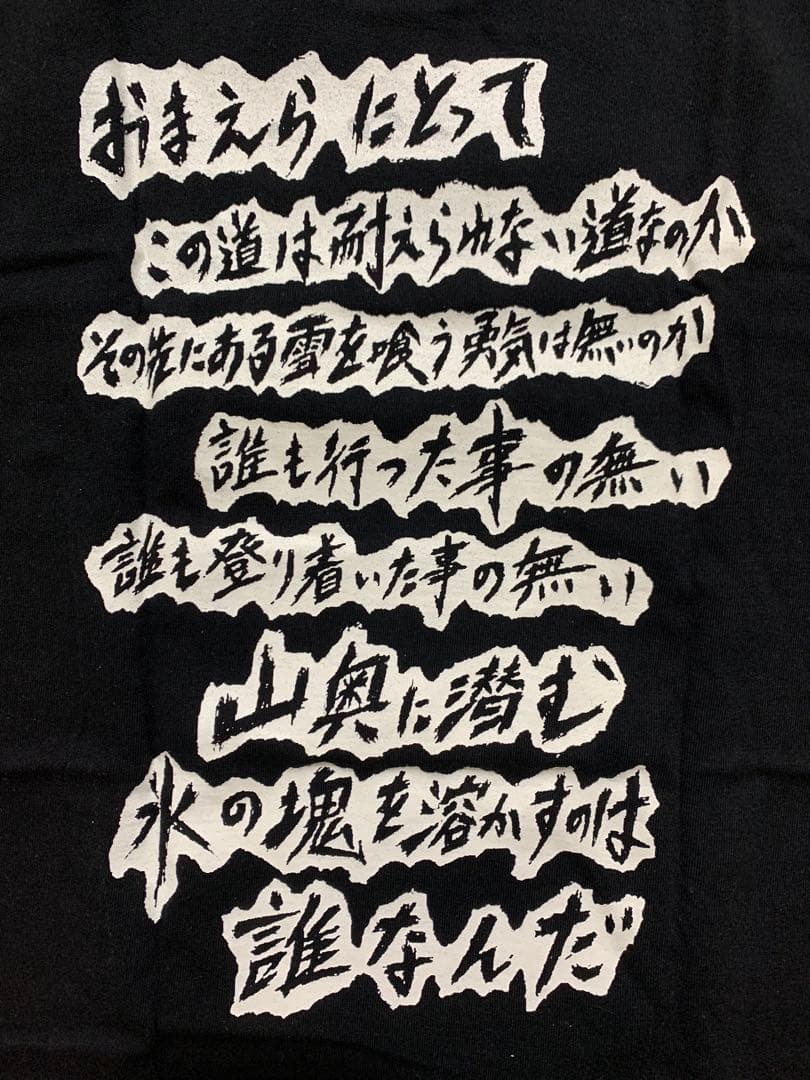 おまえらにとって
この道は耐えられない道なのか
その先にある雪を喰う勇気は無いのか
誰も行った事の無い
誰も登り着いた事の無い
山奥に潜む
氷の塊を溶かすのは
誰なんだ